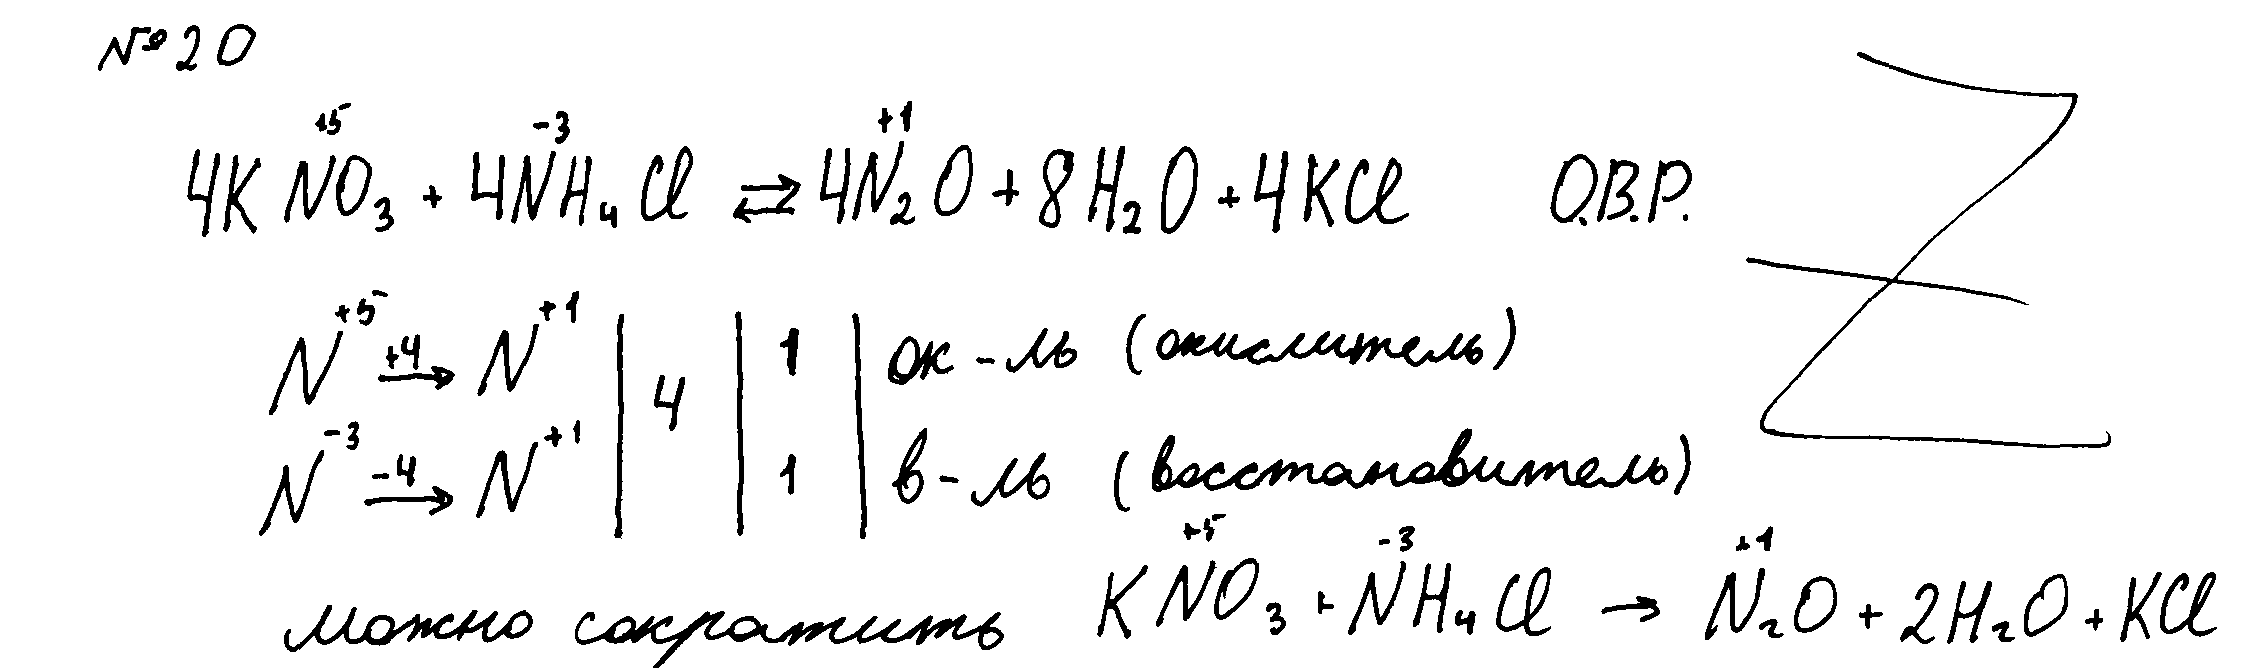 №20
+5 -3 +1
4KNO₃ + 4NH₄Cl ⇄ 4N₂O + 8H₂O + 4KCl О.В.Р.
N⁺⁵ +4→ N⁺¹ | 4 | 1 | ок-ль (окислитель)
N⁻³ -4→ N⁺¹ | | 1 | в-ль (восстановитель)
+5 -3 +1
можно сократить KNO₃ + NH₄Cl → N₂O + 2H₂O + KCl